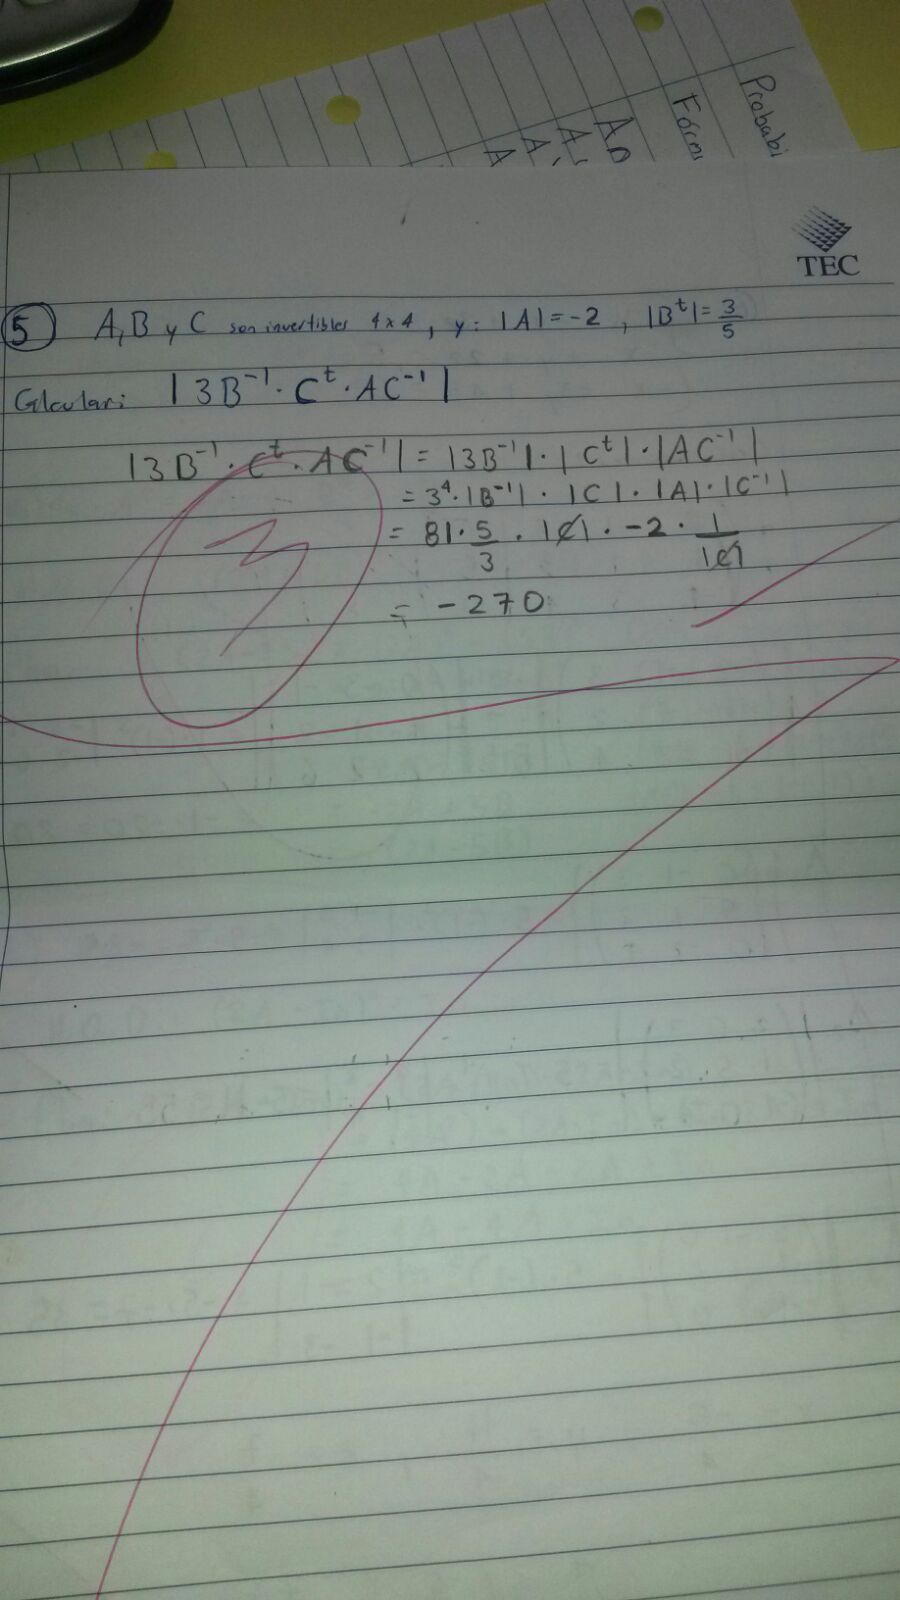 Probabi
Fórm
TEC
5 A, B y C son invertibles 4x4, y: |A|=-2, |Bᵗ|=3/5
Calcular: |3B⁻¹·Cᵗ·AC⁻¹|
|3B⁻¹·Cᵗ·AC⁻¹| = |3B⁻¹|·|Cᵗ|·|AC⁻¹|
= 3⁴·|B⁻¹|·|C|·|A|·|C⁻¹|
= 81·5/3·|C|·-2·1/|C|
= -270
3